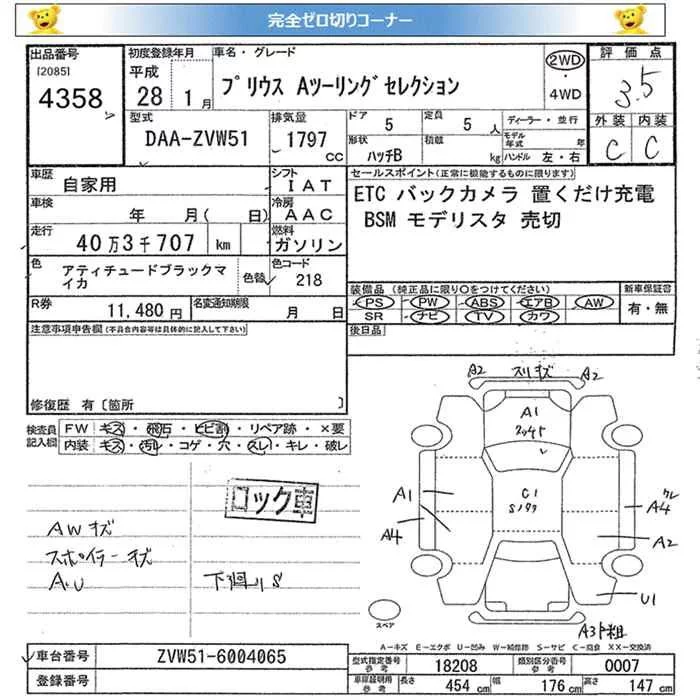 完全ゼロ切りコーナー
出品番号
[2085]
4358
初度登録年月
平成
28 1月
車名・グレード
プリウス Aツーリングセレクション
2WD
・
4WD
評価点
3.5
型式
DAA-ZVW51
排気量
1797
CC
ドア
5
定員
5 人
形状
ハッチB
積載
kg
ディーラー・並行
モデル年式 年
ハンドル 左・右
外装 内装
C C
車歴
自家用
シフト
IAT
車検
年 月( 日)
冷房
AAC
走行
40万3千707 km
燃料
ガソリン
色
アティチュードブラックマイカ
色替
色コード
218
R券
11,480 円
名変通知期限
月 日
セールスポイント(正常に機能するものに限ります)
ETC バックカメラ 置くだけ充電
BSM モデリスタ 売切
装備品 (純正品に限り○をつけてください)
新車保証書
PS PW ABS エアB AW
SR ナビ TV カワ
有・無
注意事項申告欄(不具合内容等は具体的に記入して下さい)
後日品
修復歴 有〔箇所 〕
検査員記入欄
FW キズ・飛石・ヒビ割・リペア跡・×要
内装 キズ・汚れ・コゲ・穴・スレ・キレ・破レ
ロック車
AWキズ
スポイラーキズ
AU
下廻りS
A2 スリキズ A2
A1
C1
A1
A4
A4
A2
U1
A3
スペア
A-キズ E-エクボ U-凹み W-補修跡 S-サビ C-腐食 XX-交換済
車台番号
ZVW51-6004065
登録番号
型式指定番号
参考
18208
類別区分番号
参考
0007
車庫証明用
参考
長さ 454 cm
幅 176 cm
高さ 147 cm